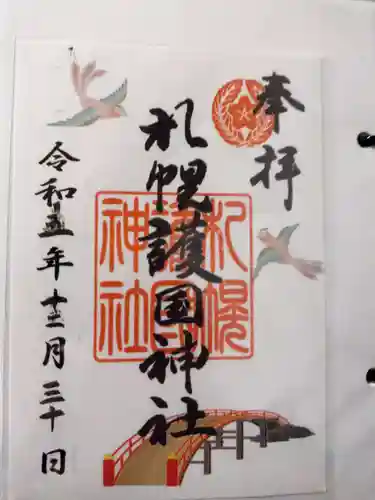 奉拝
札幌護国神社
札幌
護國
神社
令和五年十二月三十日